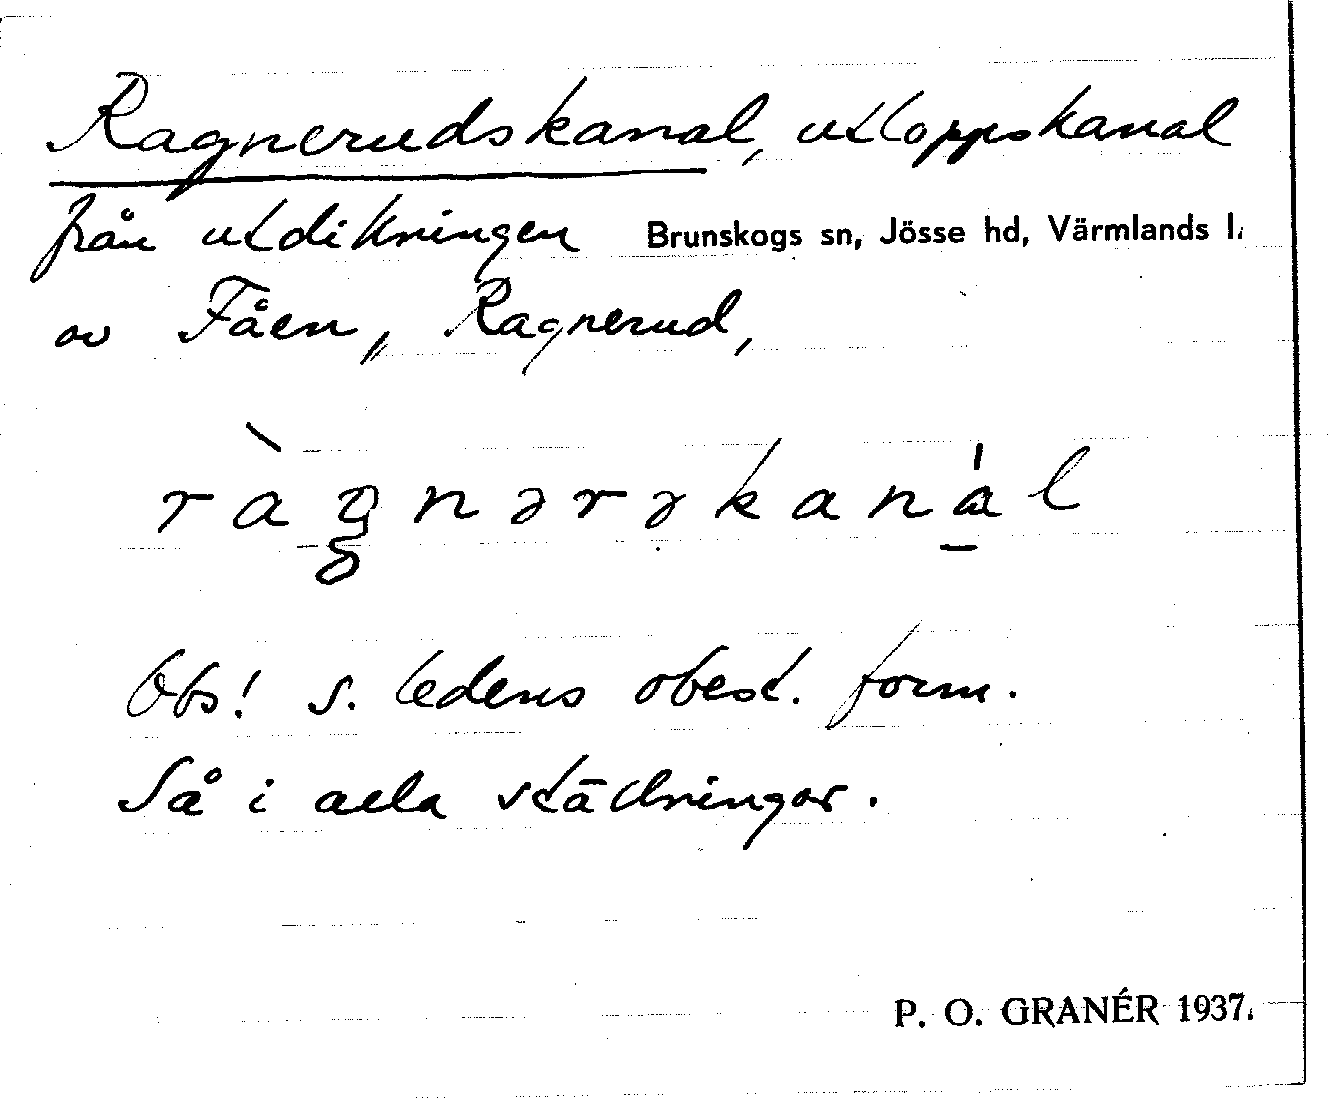 Ragnerudskanal, utloppskanal
från utdikningen Brunskogs sn, Jösse hd, Värmlands l.
av Fåen, Ragnerud,
ràgnərəkanál
Obs! s. ledens obest. form.
Så i alla ställningar.
P. O. GRANÉR 1937.